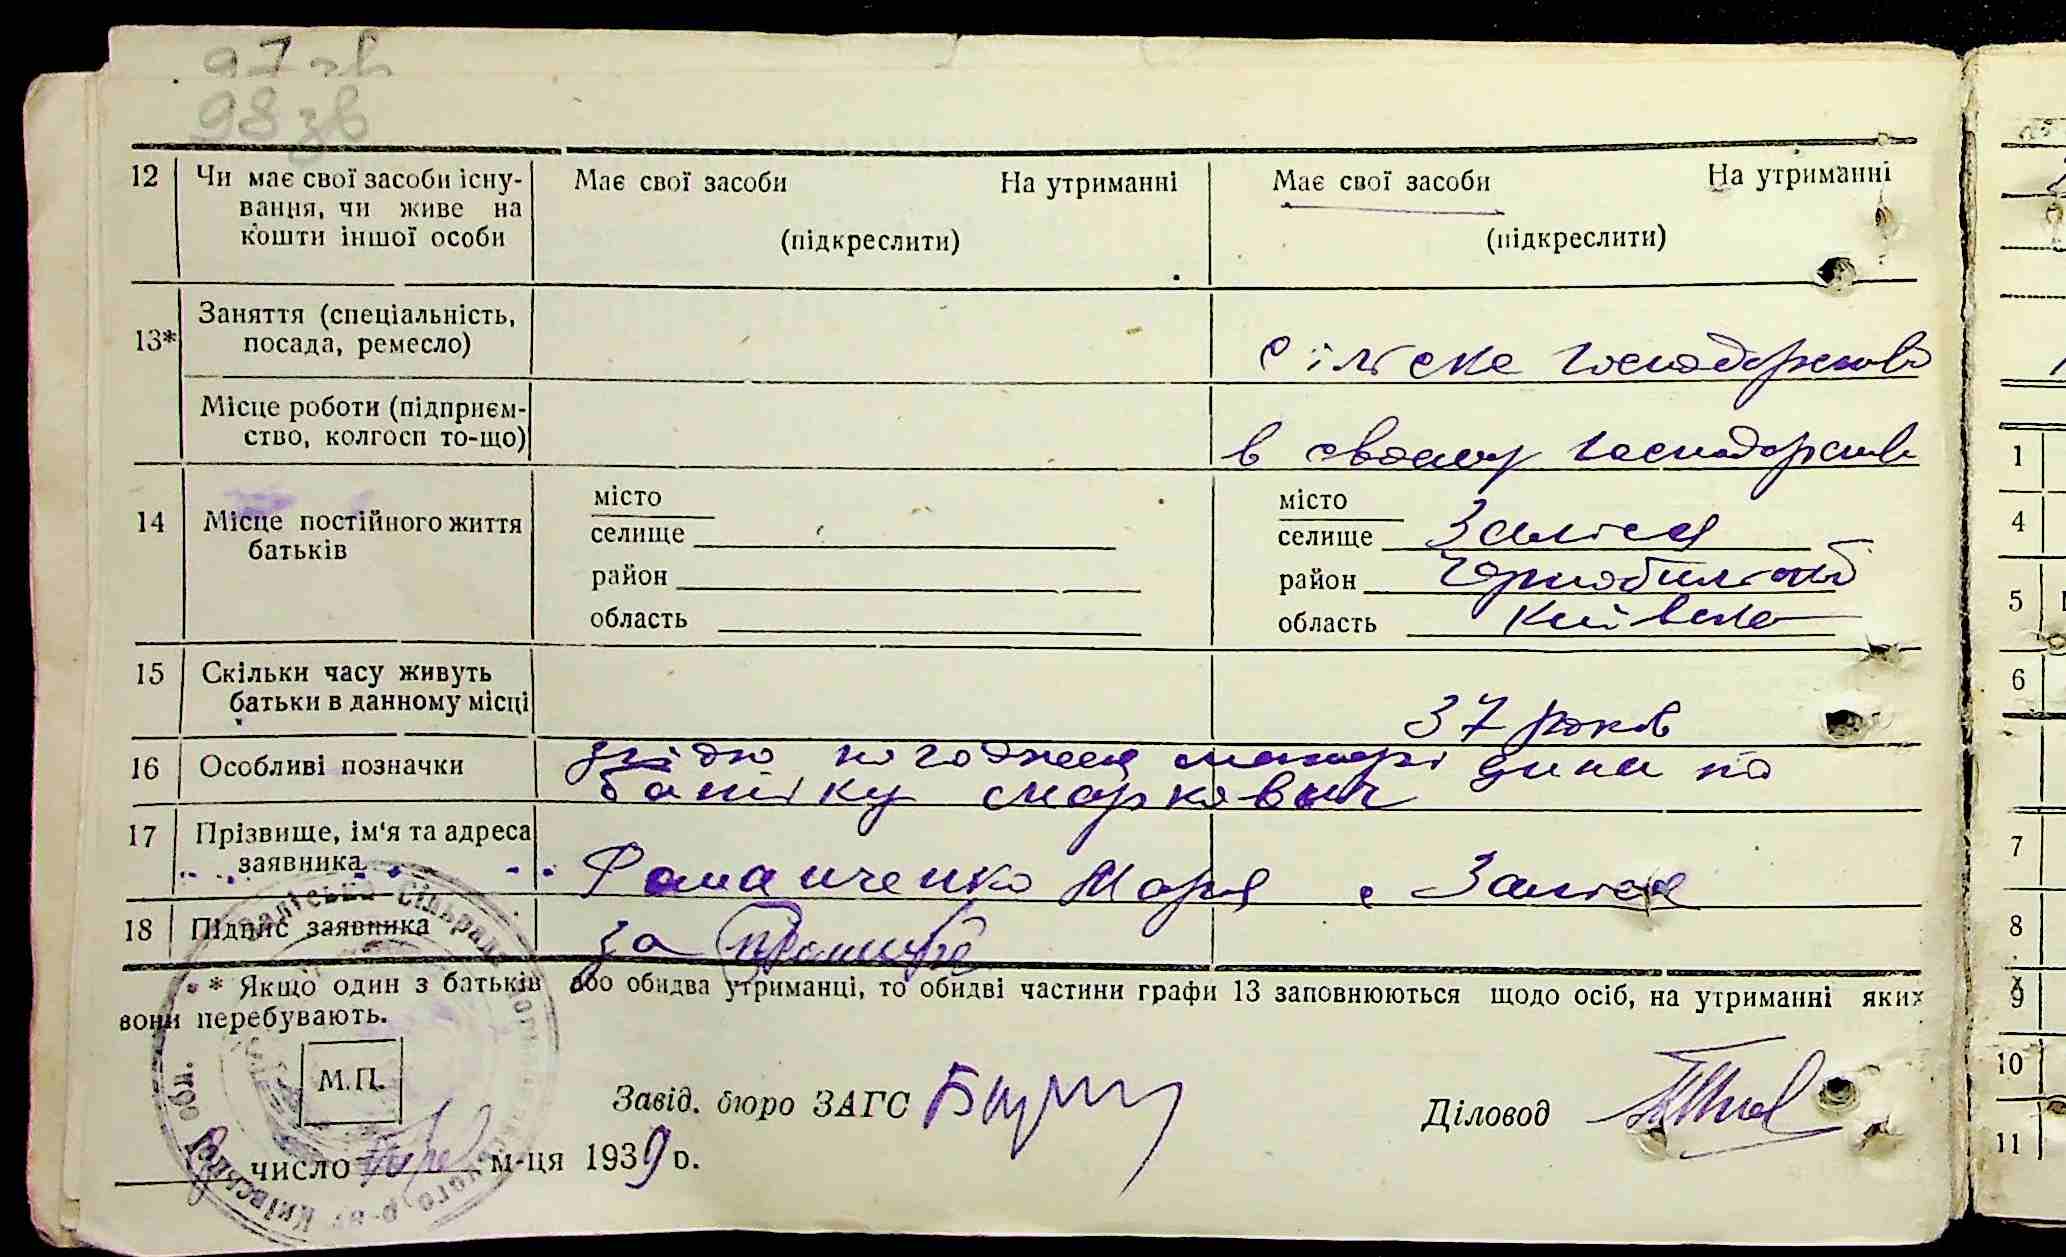 98 зв
12 Чи має свої засоби існу- Має свої засоби На утриманні Має свої засоби На утриманні
вання, чи живе на
кошти іншої особи (підкреслити) (підкреслити)
13* Заняття (спеціальність,
посада, ремесло) сільське господарство
Місце роботи (підприєм-
ство, колгосп то-що) в своєму господарстві
14 Місце постійного життя
батьків
місто місто
селище селище Залісся
район район Чорнобильський
область область Київська
15 Скільки часу живуть
батьки в данному місці 37 років
16 Особливі позначки згідно матері дина по
батьку Маркович
17 Прізвище, ім'я та адреса
заявника Романченко Марія с Залісся
18 Підпис заявника за
* Якщо один з батьків або обидва утриманці, то обидві частини графи 13 заповнюються щодо осіб, на утриманні яких
вони перебувають.
М.П.
Завід. бюро ЗАГС Діловод
число м-ця 1939 р.
1
4
5
6
7
8
9
10
11